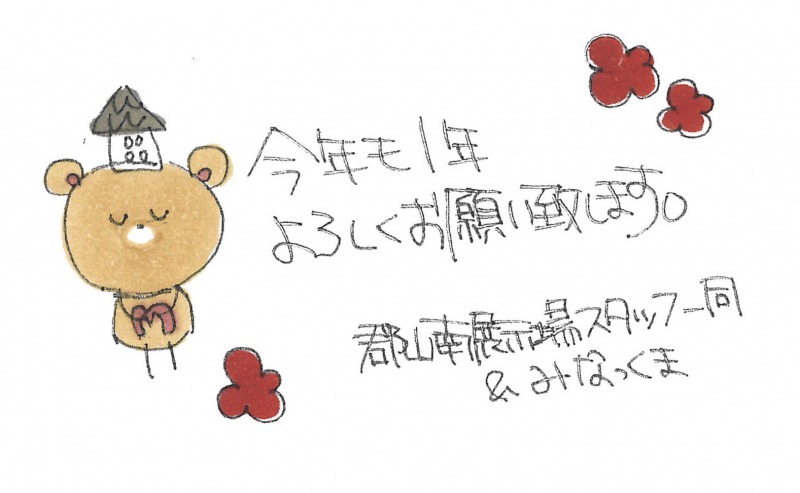 今年も1年
よろしくお願い致します。
郡山南展示場スタッフ一同
&みなっくま